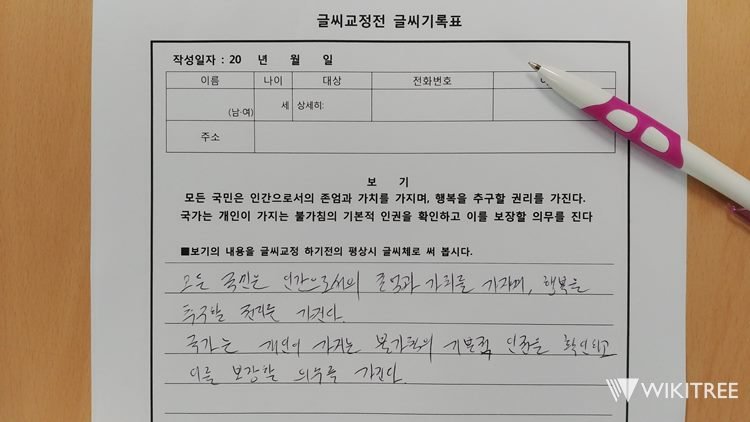 글씨교정전 글씨기록표
작성일자 : 20 년 월 일
이름 나이 대상 전화번호
(남·여) 세 상세히:
주소
보 기
모든 국민은 인간으로서의 존엄과 가치를 가지며, 행복을 추구할 권리를 가진다.
국가는 개인이 가지는 불가침의 기본적 인권을 확인하고 이를 보장할 의무를 진다
■보기의 내용을 글씨교정 하기전의 평상시 글씨체로 써 봅시다.
모든 국민은 인간으로서의 존엄과 가치를 가지며, 행복을
추구할 권리를 가진다.
국가는 개인이 가지는 불가침의 기본적 인권을 확인하고
이를 보장할 의무를 가진다.
WIKITREE